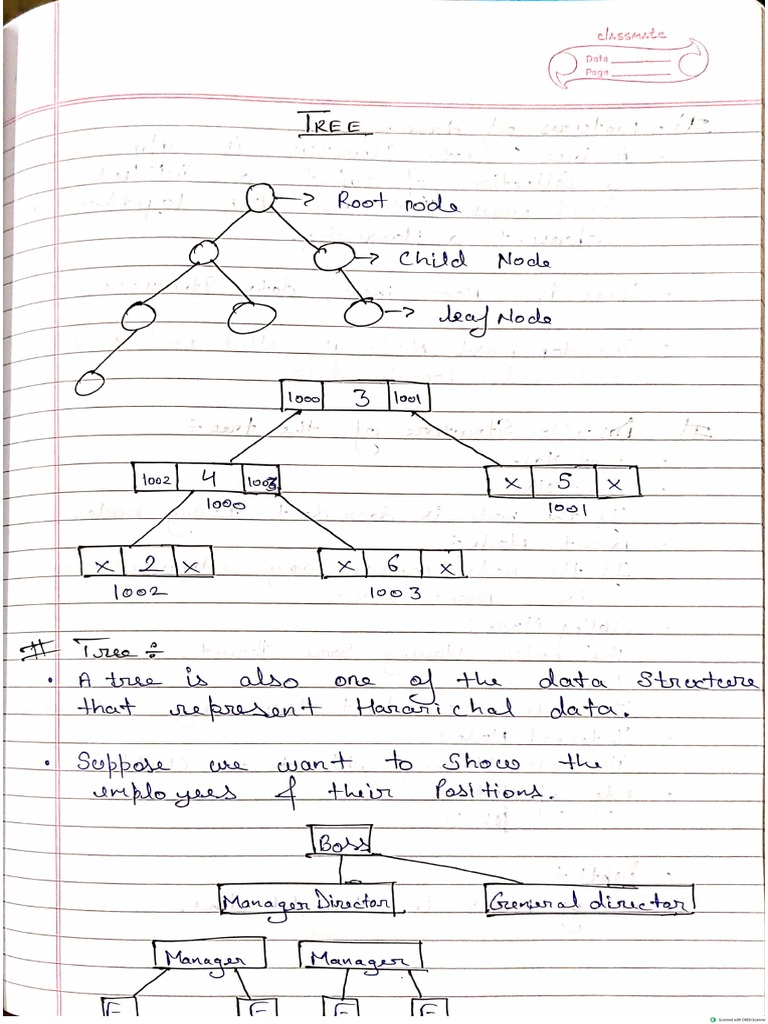 classmate
Date
Page
TREE
Root node
Child Node
leaf Node
1000 3 1001
1002 4 1003
x 5 x
1000
1001
x 2 x
x 6 x
1002
1003
# Tree ÷
• A tree is also one of the data Structure
that represent Hararichal data.
• Suppose we want to show the
employees & their Positions.
Boss
Manager Director
General director
Manager
Manager
E E E E
Scanned with OKEN Scanner